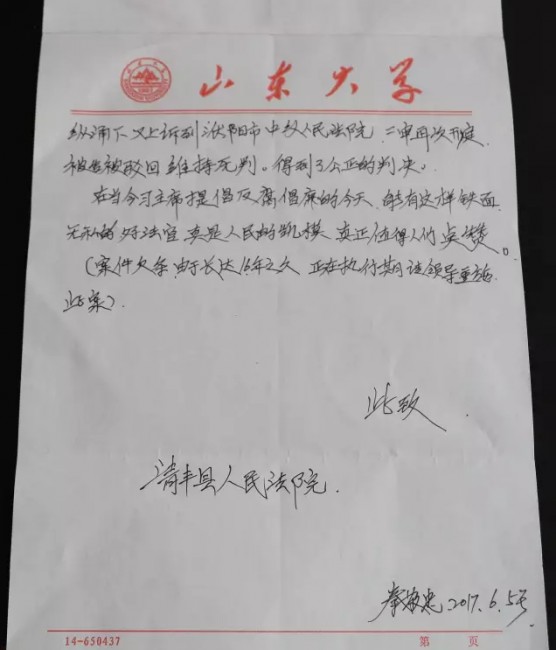 山东大学
纵涌下又上诉到濮阳市中级人民法院 二审再次开庭
被告被驳回维持原判。得到了公正的判决。
在当今习主席提倡反腐倡廉的今天 能有这样铁面
无私的好法官 真是人民的楷模 真正值得人们点赞。
(案件欠条 由于长达16年之久 正在执行期 请领导重视
此案)
此致
清丰县人民法院.
2017.6.5号
14-650437
第 页